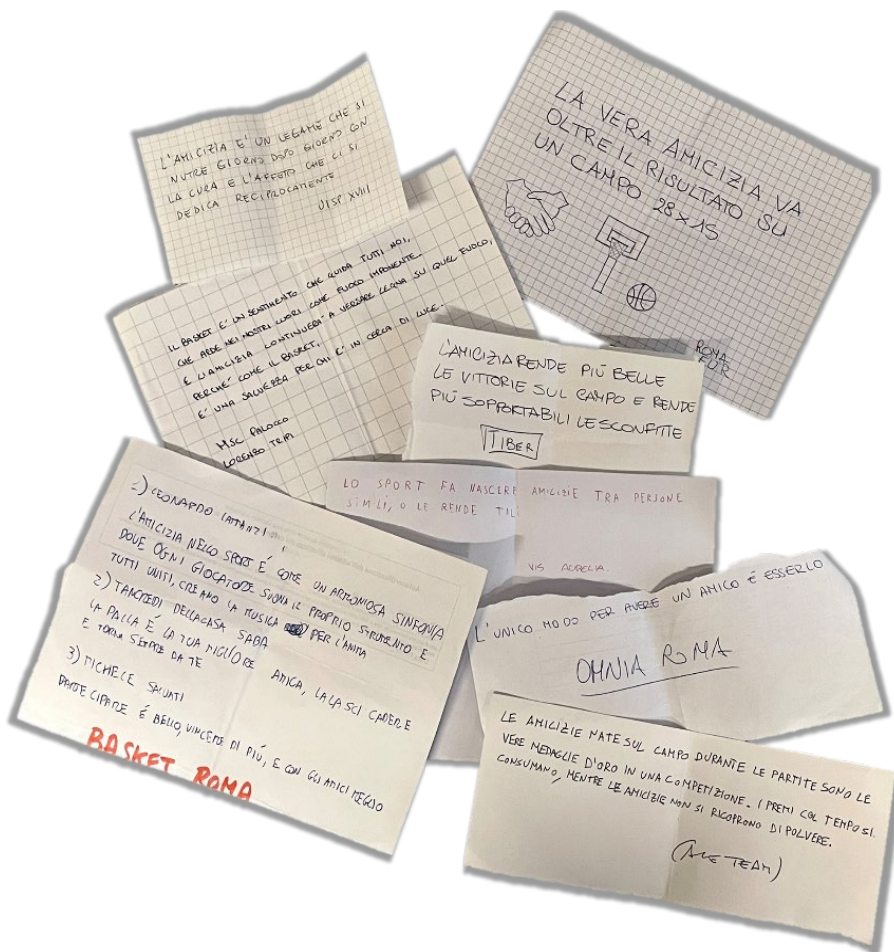 L'AMICIZIA E' UN LEGAME CHE SI
NUTRE GIORNO DOPO GIORNO CON
LA CURA E L'AFFETTO CHE CI SI
DEDICA RECIPROCAMENTE
VISP XVIII
LA VERA AMICIZIA VA
OLTRE IL RISULTATO SU
UN CAMPO 28×15
ROMA
EUR
IL BASKET E' UN SENTIMENTO CHE GUIDA TUTTI NOI,
CHE ARDE NEI NOSTRI CUORI COME FUOCO IMPONENTE
E L'AMICIZIA CONTINUERA' A VERSARE LEGNA SU QUEL FUOCO,
PERCHE' COME IL BASKET,
E' UNA SALVEZZA PER CHI E' IN CERCA DI LUCE.
MSC PALOCCO
LORENZO TRIPI
L'AMICIZIA RENDE PIÙ BELLE
LE VITTORIE SUL CAMPO E RENDE
PIÙ SOPPORTABILI LE SCONFITTE
TIBER
LO SPORT FA NASCERE AMICIZIE TRA PERSONE
SIMILI, O LE RENDE TALI
VIS AURELIA.
1) LEONARDO LATTANZI
L'AMICIZIA NELLO SPORT É COME UN ARMONIOSA SINFONIA
DOVE OGNI GIOCATORE SUONA IL PROPRIO STRUMENTO E
TUTTI UNITI, CREANO LA MUSICA PER L'ANIMA
2) TANCREDI DELLACASA SABA
LA PALLA É LA TUA MIGLIORE AMICA, LA LASCI CADERE
E TORNA SEMPRE DA TE
3) MICHELE SALVATI
PARTECIPARE É BELLO, VINCERE DI PIÙ, E CON GLI AMICI MEGLIO
BASKET ROMA
L'UNICO MODO PER AVERE UN AMICO É ESSERLO
OMNIA ROMA
LE AMICIZIE NATE SUL CAMPO DURANTE LE PARTITE SONO LE
VERE MEDAGLIE D'ORO IN UNA COMPETIZIONE. I PREMI COL TEMPO SI
CONSUMANO, MENTRE LE AMICIZIE NON SI RICOPRONO DI POLVERE.
(ACE TEAM)